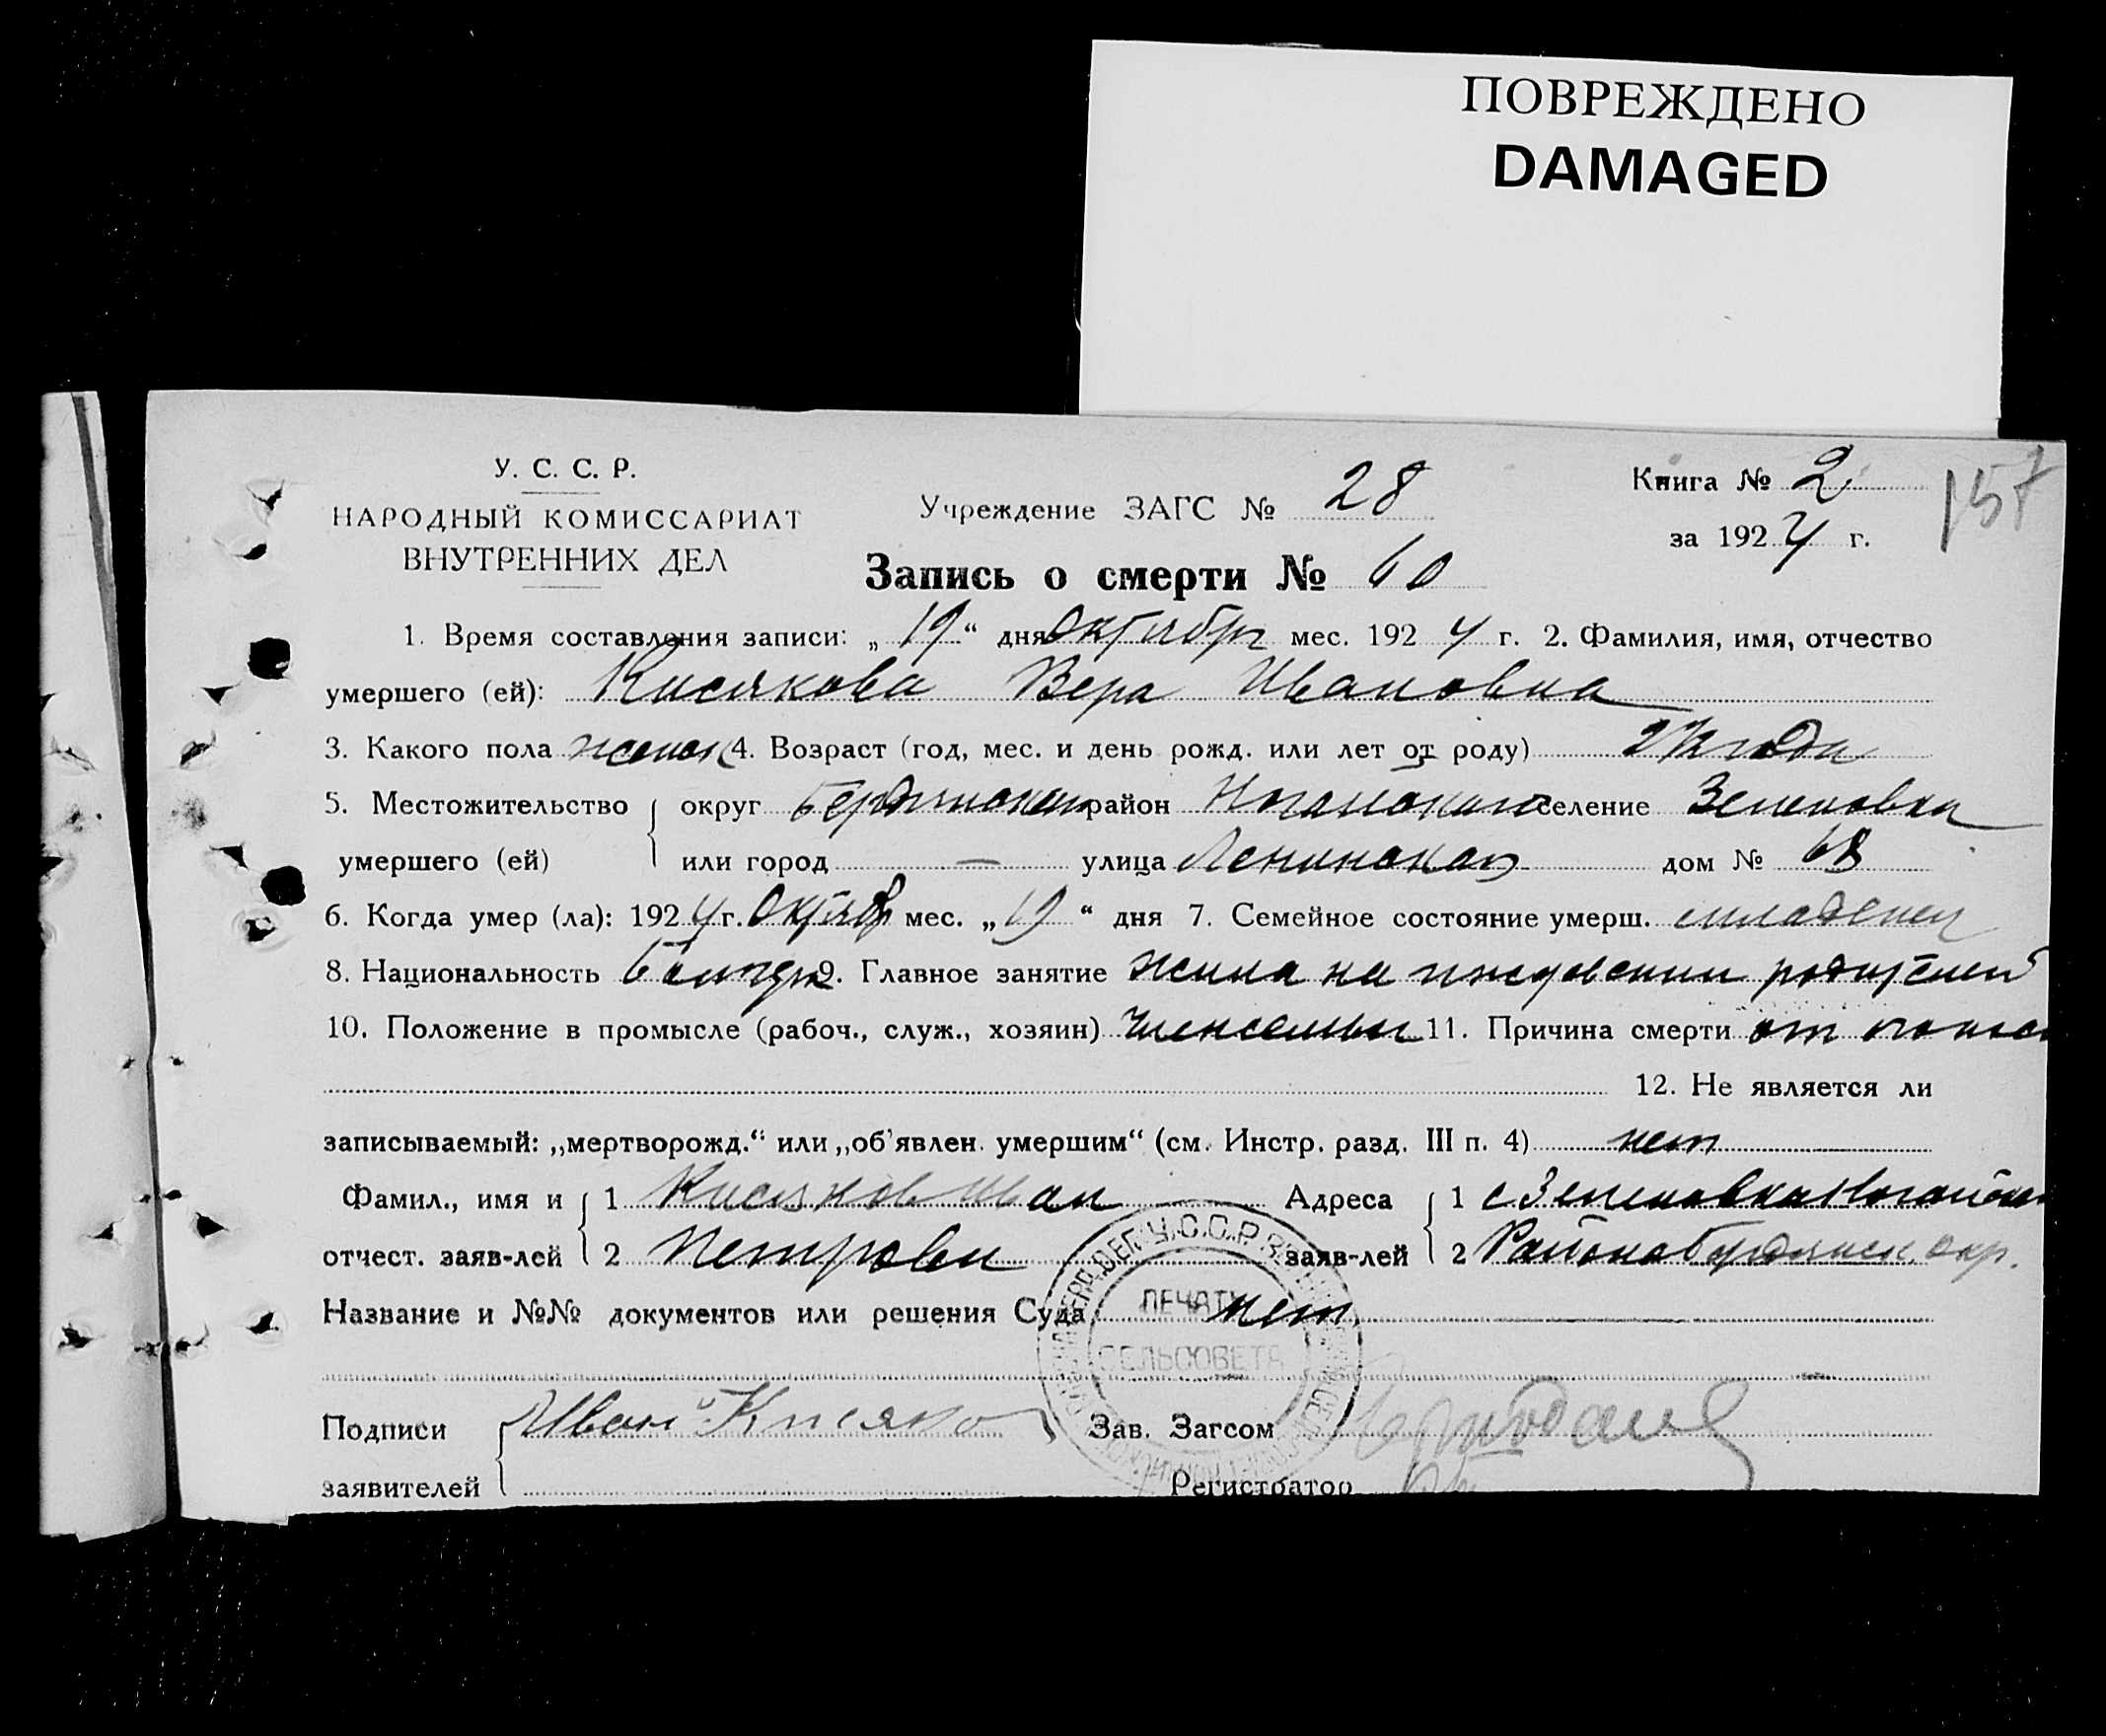 ПОВРЕЖДЕНО
DAMAGED
У. С. С. Р.
НАРОДНЫЙ КОМИССАРИАТ
ВНУТРЕННИХ ДЕЛ
Учреждение ЗАГС № 28
Книга № 2
за 1924 г.
157
Запись о смерти № 60
1. Время составления записи: „19“ дня Октября мес. 1924 г. 2. Фамилия, имя, отчество
умершего (ей): Кисякова Вера Ивановна
3. Какого пола женск 4. Возраст (год, мес. и день рожд. или лет от роду) 2½ года
5. Местожительство округ район селение Зеленовка
умершего (ей) или город — улица Ленинская дом № 68
6. Когда умер (ла): 1924 г. Октябр мес. „19“ дня 7. Семейное состояние умерш. младенец
8. Национальность 9. Главное занятие жила на иждевении родителей
10. Положение в промысле (рабоч., служ., хозяин) член семьи 11. Причина смерти от
12. Не является ли
записываемый: „мертворожд.“ или „об'явлен. умершим“ (см. Инстр. разд. III п. 4) нет
Фамил., имя и 1 Кисяков Иван Адреса 1 с Зеленовка
отчест. заяв-лей 2 Петрови заяв-лей 2 Района Бердянск. окр.
Название и №№ документов или решения Суда нет
ПЕЧАТЬ
СЕЛЬСОВЕТА
У.С.С.Р.
Подписи Иван Кисяков Зав. Загсом
заявителей Регистратор